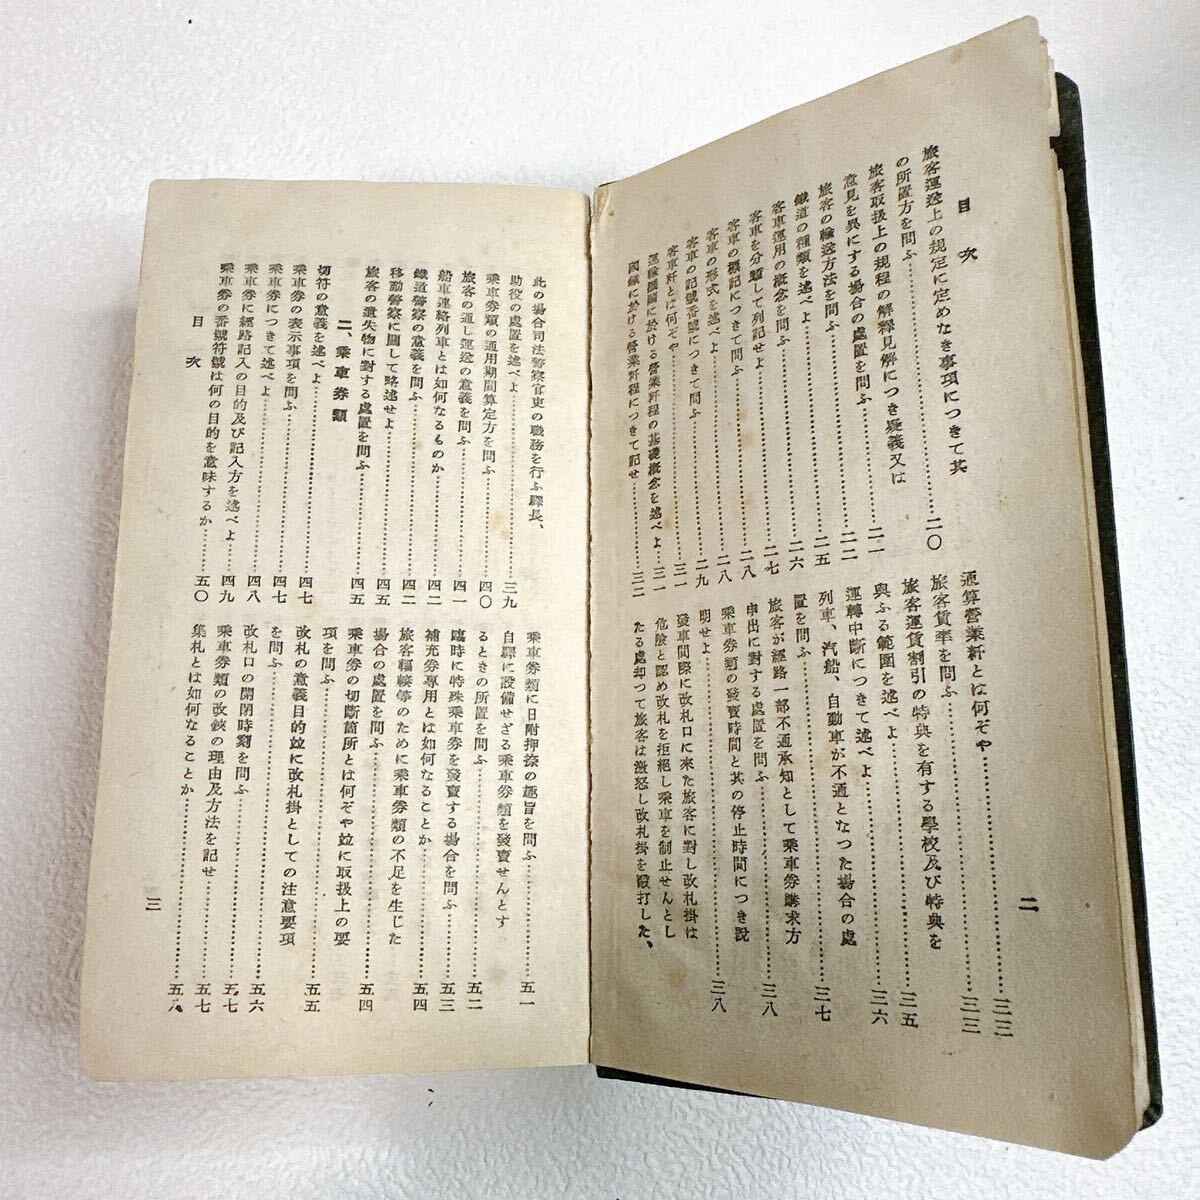 目次
旅客運送上の規定に定めなき事項につきて其
の所置方を問ふ……二〇
旅客取扱上の規程の解釋見解につき疑義又は
意見を異にする場合の處置を問ふ……二一
旅客の輸送方法を問ふ……二二
鐵道の種類を述べよ……二五
客車運用の概念を問ふ……二六
客車を分類して列記せよ……二七
客車の標記につきて問ふ……二八
客車の形式を述べよ……二八
客車の記號番號につきて問ふ……二九
客車粁とは何ぞや……三一
運輸機關に於ける營業粁程の基礎概念を述べよ……三一
國鐵に於ける營業粁程につきて記せ……三二
通算營業粁とは何ぞや……三三
旅客賃率を問ふ……三三
旅客運賃割引の特典を有する學校及び特典を
與ふる範圍を述べよ……三五
運轉中斷につきて述べよ……三六
列車、汽船、自動車が不通となつた場合の處
置を問ふ……三七
旅客が經路一部不通承知として乘車券購求方
申出に對する處置を問ふ……三八
乘車券類の發賣時間と其の停止時間につき説
明せよ……三八
發車間際に改札口に來た旅客に對し改札掛は
危險と認め改札を拒絕し乘車を制止せんとし
たる處却つて旅客は激怒し改札掛を毆打した、
二
此の場合司法警察官吏の職務を行ふ驛長、
助役の處置を述べよ……三九
乘車券類の通用期間算定方を問ふ……四〇
旅客の通し運送の意義を問ふ……四一
船車連絡列車とは如何なるものか……四二
鐵道警察の意義を問ふ……四二
移動警察に關して略述せよ……四五
旅客の遺失物に對する處置を問ふ……四五
二、乘車券類
切符の意義を述べよ……四七
乘車券の表示事項を問ふ……四七
乘車券につきて述べよ……四八
乘車券に經路記入の目的及び記入方を述べよ……四九
乘車券の番號符號は何の目的を意味するか……五〇
目次
乘車券類に日附押捺の趣旨を問ふ……五一
自驛に設備せざる乘車券類を發賣せんとす
るときの所置を問ふ……五二
臨時に特殊乘車券を發賣する場合を問ふ……五三
補充券專用とは如何なることか……五四
旅客輻輳等のために乘車券類の不足を生じた
場合の處置を問ふ……五四
乘車券の切斷箇所とは何ぞや竝に取扱上の要
項を問ふ……五五
改札の意義目的竝に改札掛としての注意要項
を問ふ……五六
改札口の開閉時刻を問ふ……五七
乘車券類の改鋏の理由及方法を記せ……五七
集札とは如何なることか……五八
三